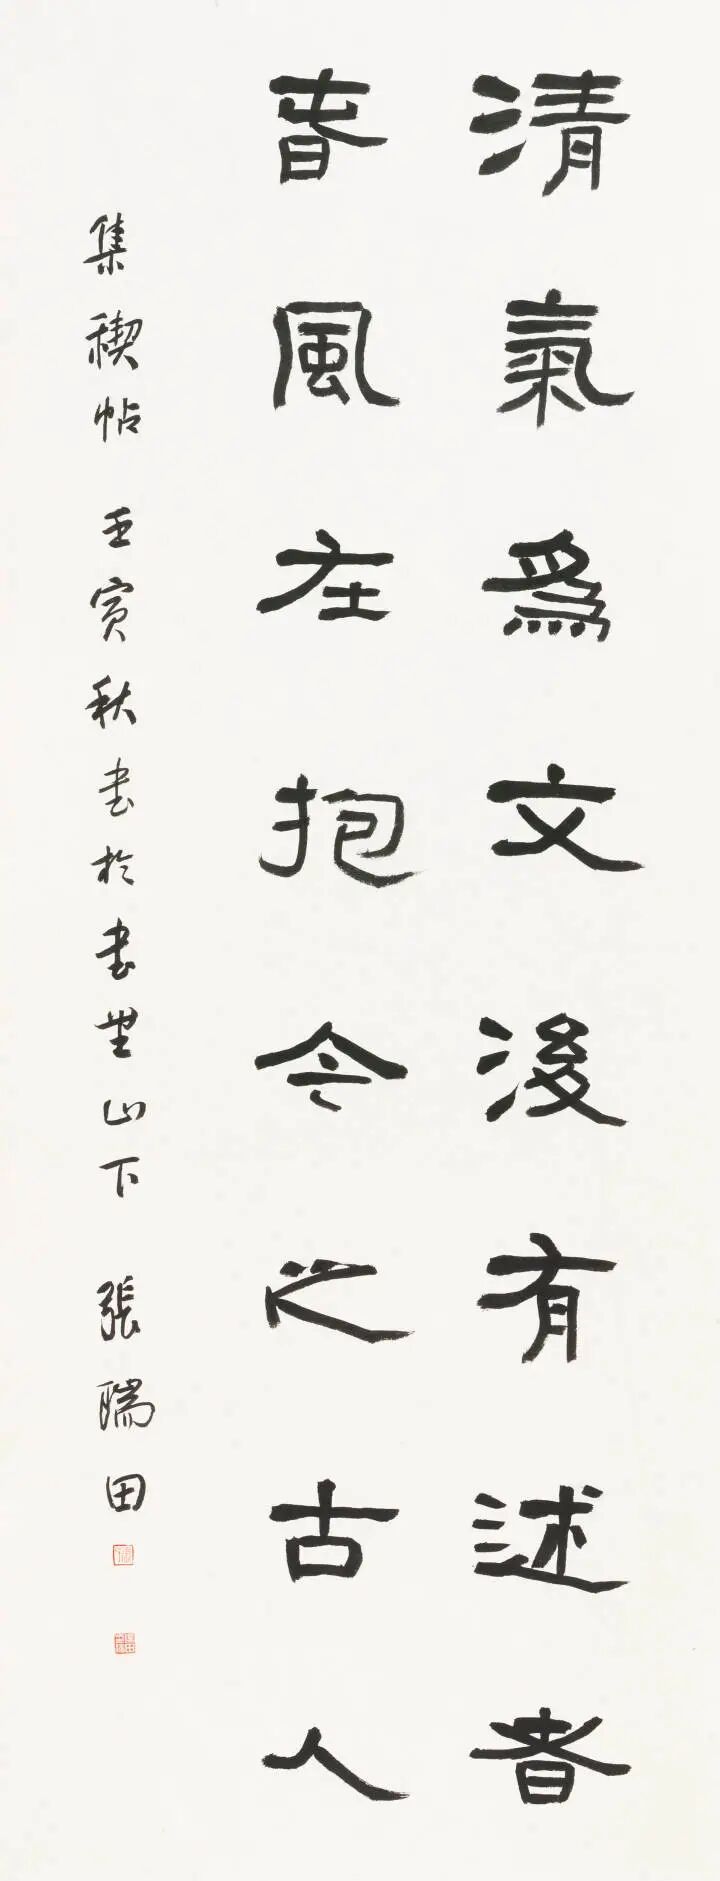 清氣為文後有述者
春風在抱今之古人
集禊帖 壬寅秋書於書聖山下 張瑞田